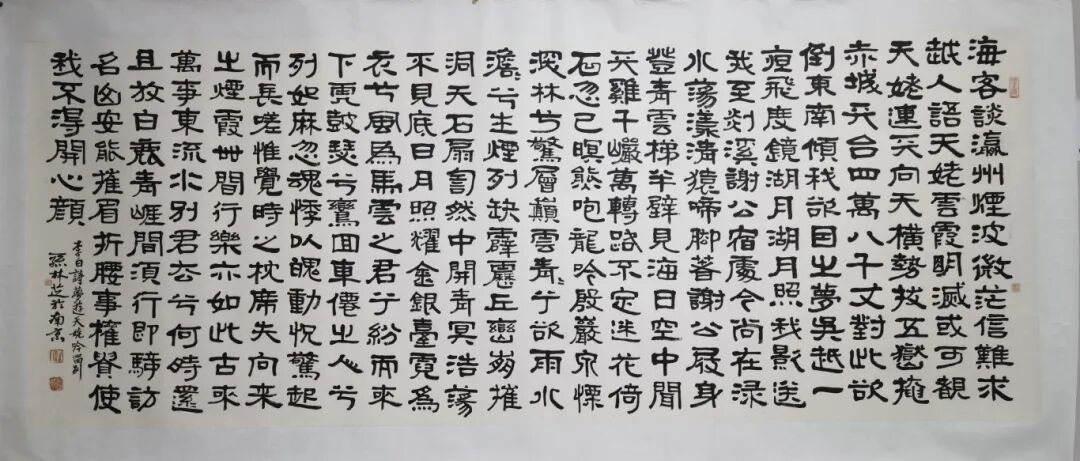 海客談瀛州煙波微茫信難求
越人語天姥雲霞明滅或可觀
天姥連天向天橫勢拔五嶽掩
赤城天台四萬八千丈對此欲
倒東南傾我欲因之夢吳越一
夜飛度鏡湖月湖月照我影送
我至剡溪謝公宿處今尚在淥
水蕩漾清猿啼腳著謝公屐身
登青雲梯半壁見海日空中聞
天雞千巖萬轉路不定迷花倚
石忽已暝熊咆龍吟殷巖泉慄
深林兮驚層巔雲青兮欲雨水
澹兮生煙列缺霹靂丘巒崩摧
洞天石扇訇然中開青冥浩蕩
不見底日月照耀金銀臺霓為
衣兮風為馬雲之君兮紛而來
下虎鼓瑟兮鸞回車僊之人兮
列如麻忽魂悸以魄動怳驚起
而長嗟惟覺時之枕席失向來
之煙霞世間行樂亦如此古來
萬事東流水別君去兮何時還
且放白鹿青崖間須行即騎訪
名山安能摧眉折腰事權貴使
我不得開心顏
李白詩夢遊天姥吟留別
孫林芝於南京